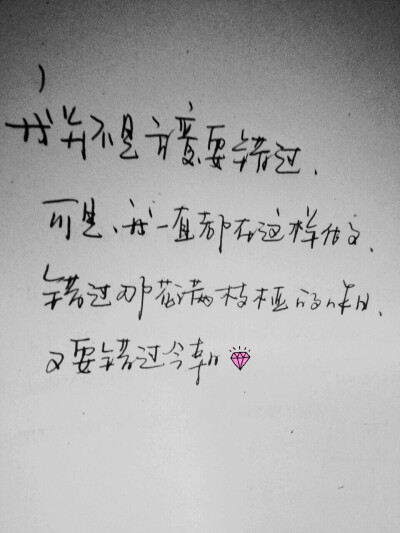 我并不是立意要错过,
可是、我一直都在这样做,
错过那花满枝桠的昨日、
又要错过今朝